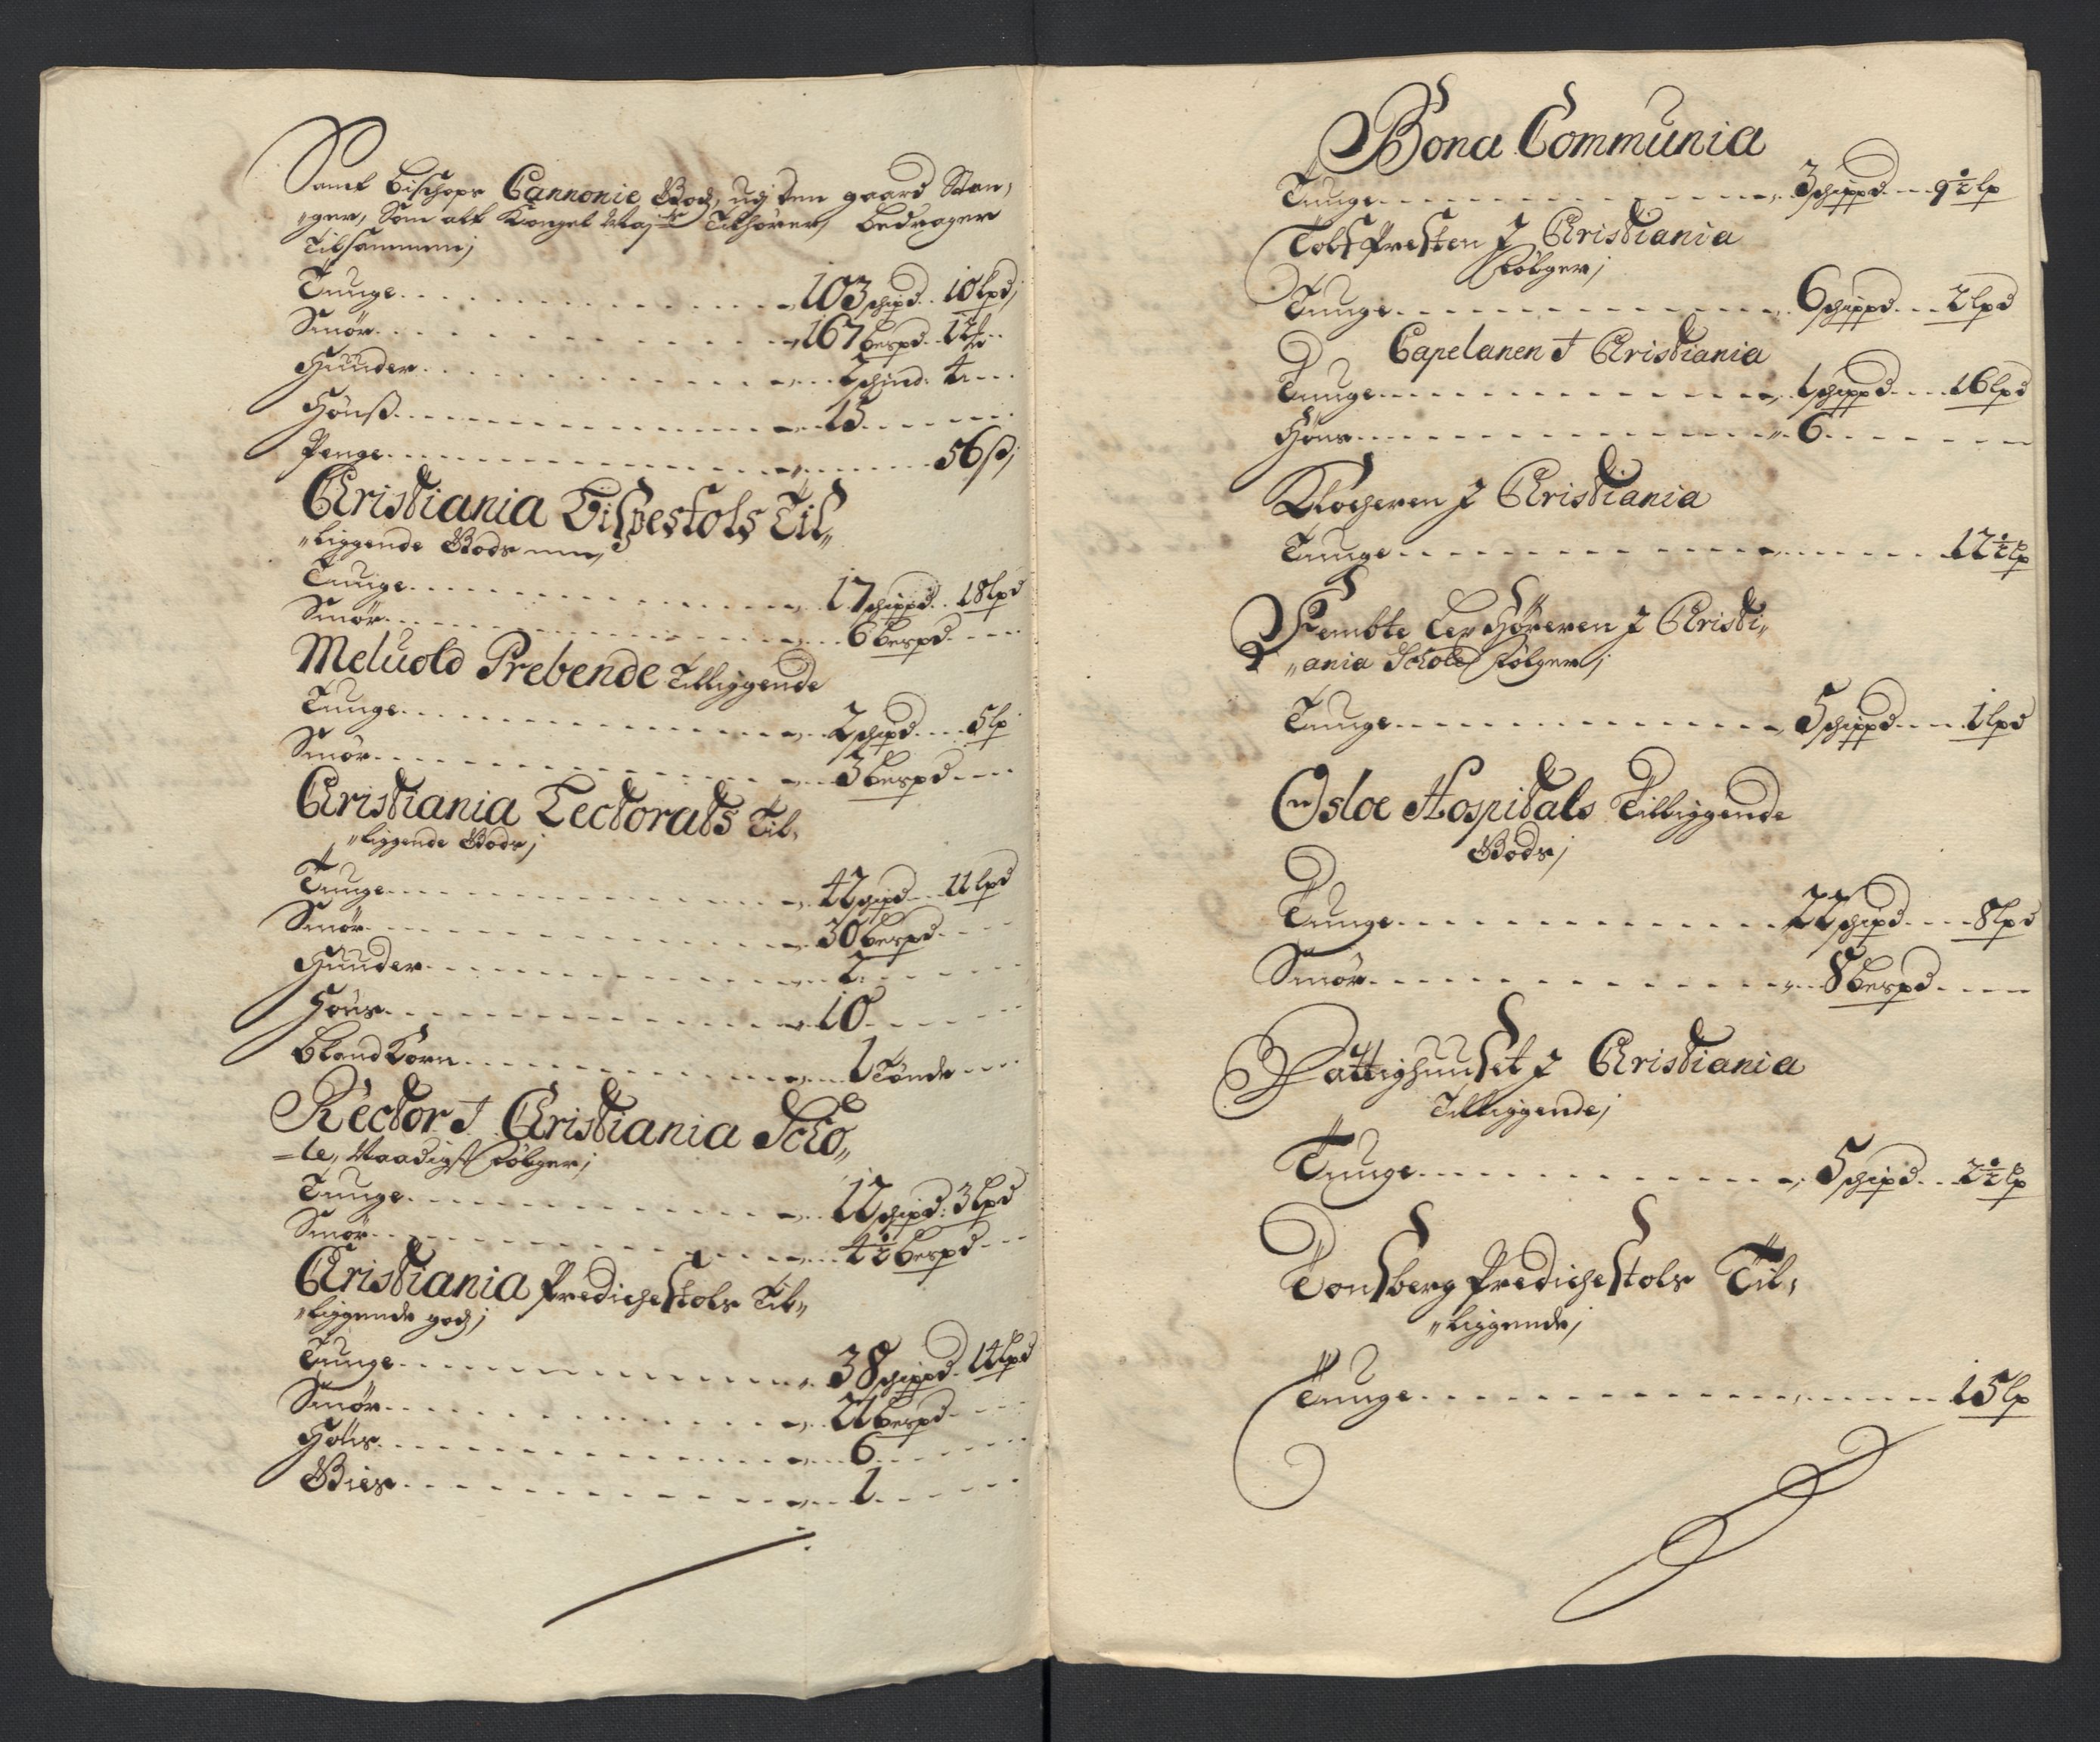 Samt Bischops Cannonie Gods, udj den gaard Stan,
„ger, Som alt Kongel May:tt Tilhører, bedrager
Tilsammen;
Tunge 103 schipd 10 lpd;
Smør 167 bespd 12
Huuder 2
Hønß 15
Penge 56 ß;
Christiania Bispestols Til„
„liggende Gods
Tunge 17 schippd 18 lpd
Smør 6 bespd
Meluold Prebende Tilliggende
Tunge 2 schipd 5 lp
Smør 3 bespd
Christiania Lectorats Til„
„liggende Gods;
Tunge 42 schipd 11 lpd
Smør 30 bespd
Huuder 2
Høns 10
bland Korn 1 Tønde
Rector I Christiania Scho„
„le, Følger;
Tunge 12 schipd: 3 lpd
Smør 4½ bespd
Christiania PredicheStols Til„
„liggende gods;
Tunge 38 schippd 14 lpd
Smør 21 bespd
Høns 6
Gies 1
Bona Communia
Tunge 3 schippd 9½ lp
TolfPresten J Christiania
Følger;
Tunge 6 schippd 2 lpd
Capelanen J Christiania
Tunge 1 schippd 16 lpd
Høns 6
Klocheren J Christiania
Tunge 12½ lp
Fembte Lex Høreren J Christi„
„ania Schole Følger;
Tunge 5 schippd 1 lpd
Opsloe Hospitals Tilliggende
Gods;
Tunge 22 schipd 8 lpd
Smør 8 bespd
FattighuuSet J Christiania
Tilliggende;
Tunge 5 schipd 2½ lp
TonSberg PredicheStols Til„
„liggende;
Tunge 15 lp